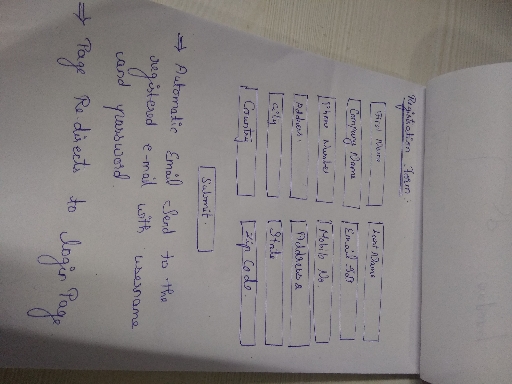 Registration Form:
First Name
Last Name
Company Name
Email
Phone Number
Mobile No
Address
Address 2
City
State
Country
Zip Code
Submit.
⇒ Automatic Email Send to the
registered e-mail with username
and password.
⇒ Page Re-directs to login Page